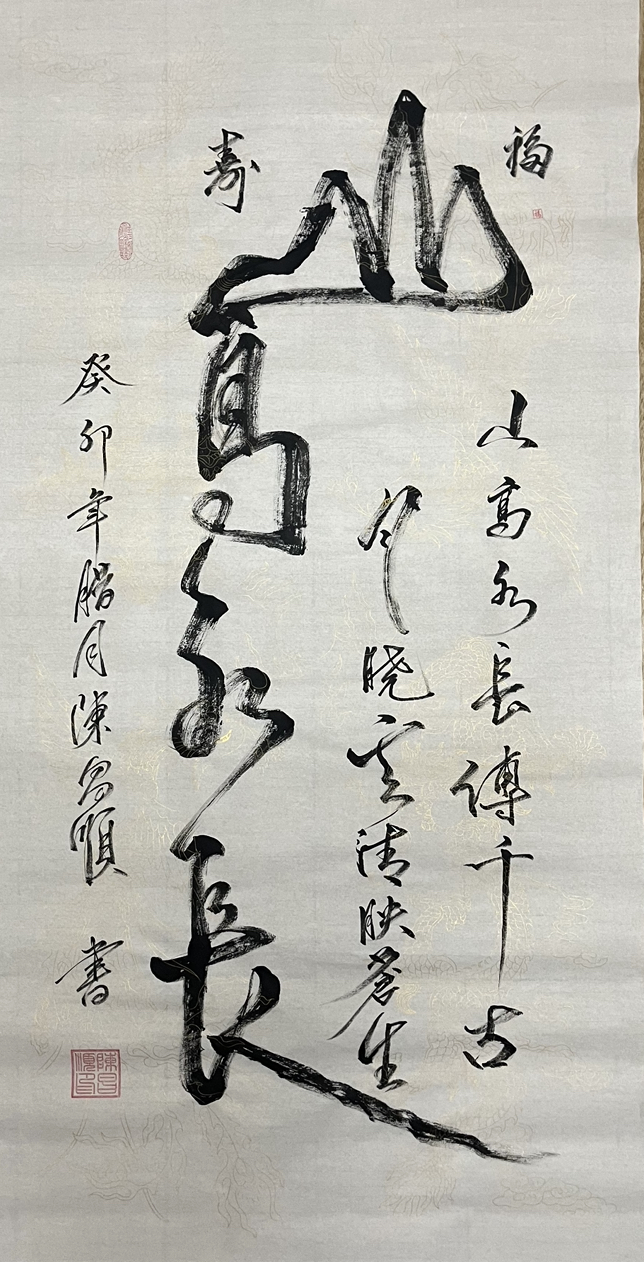 福
寿
山高水長
山高水長傳千古
晓雲清映蒼生
癸卯年腊月陳昌順 書
陳昌順印